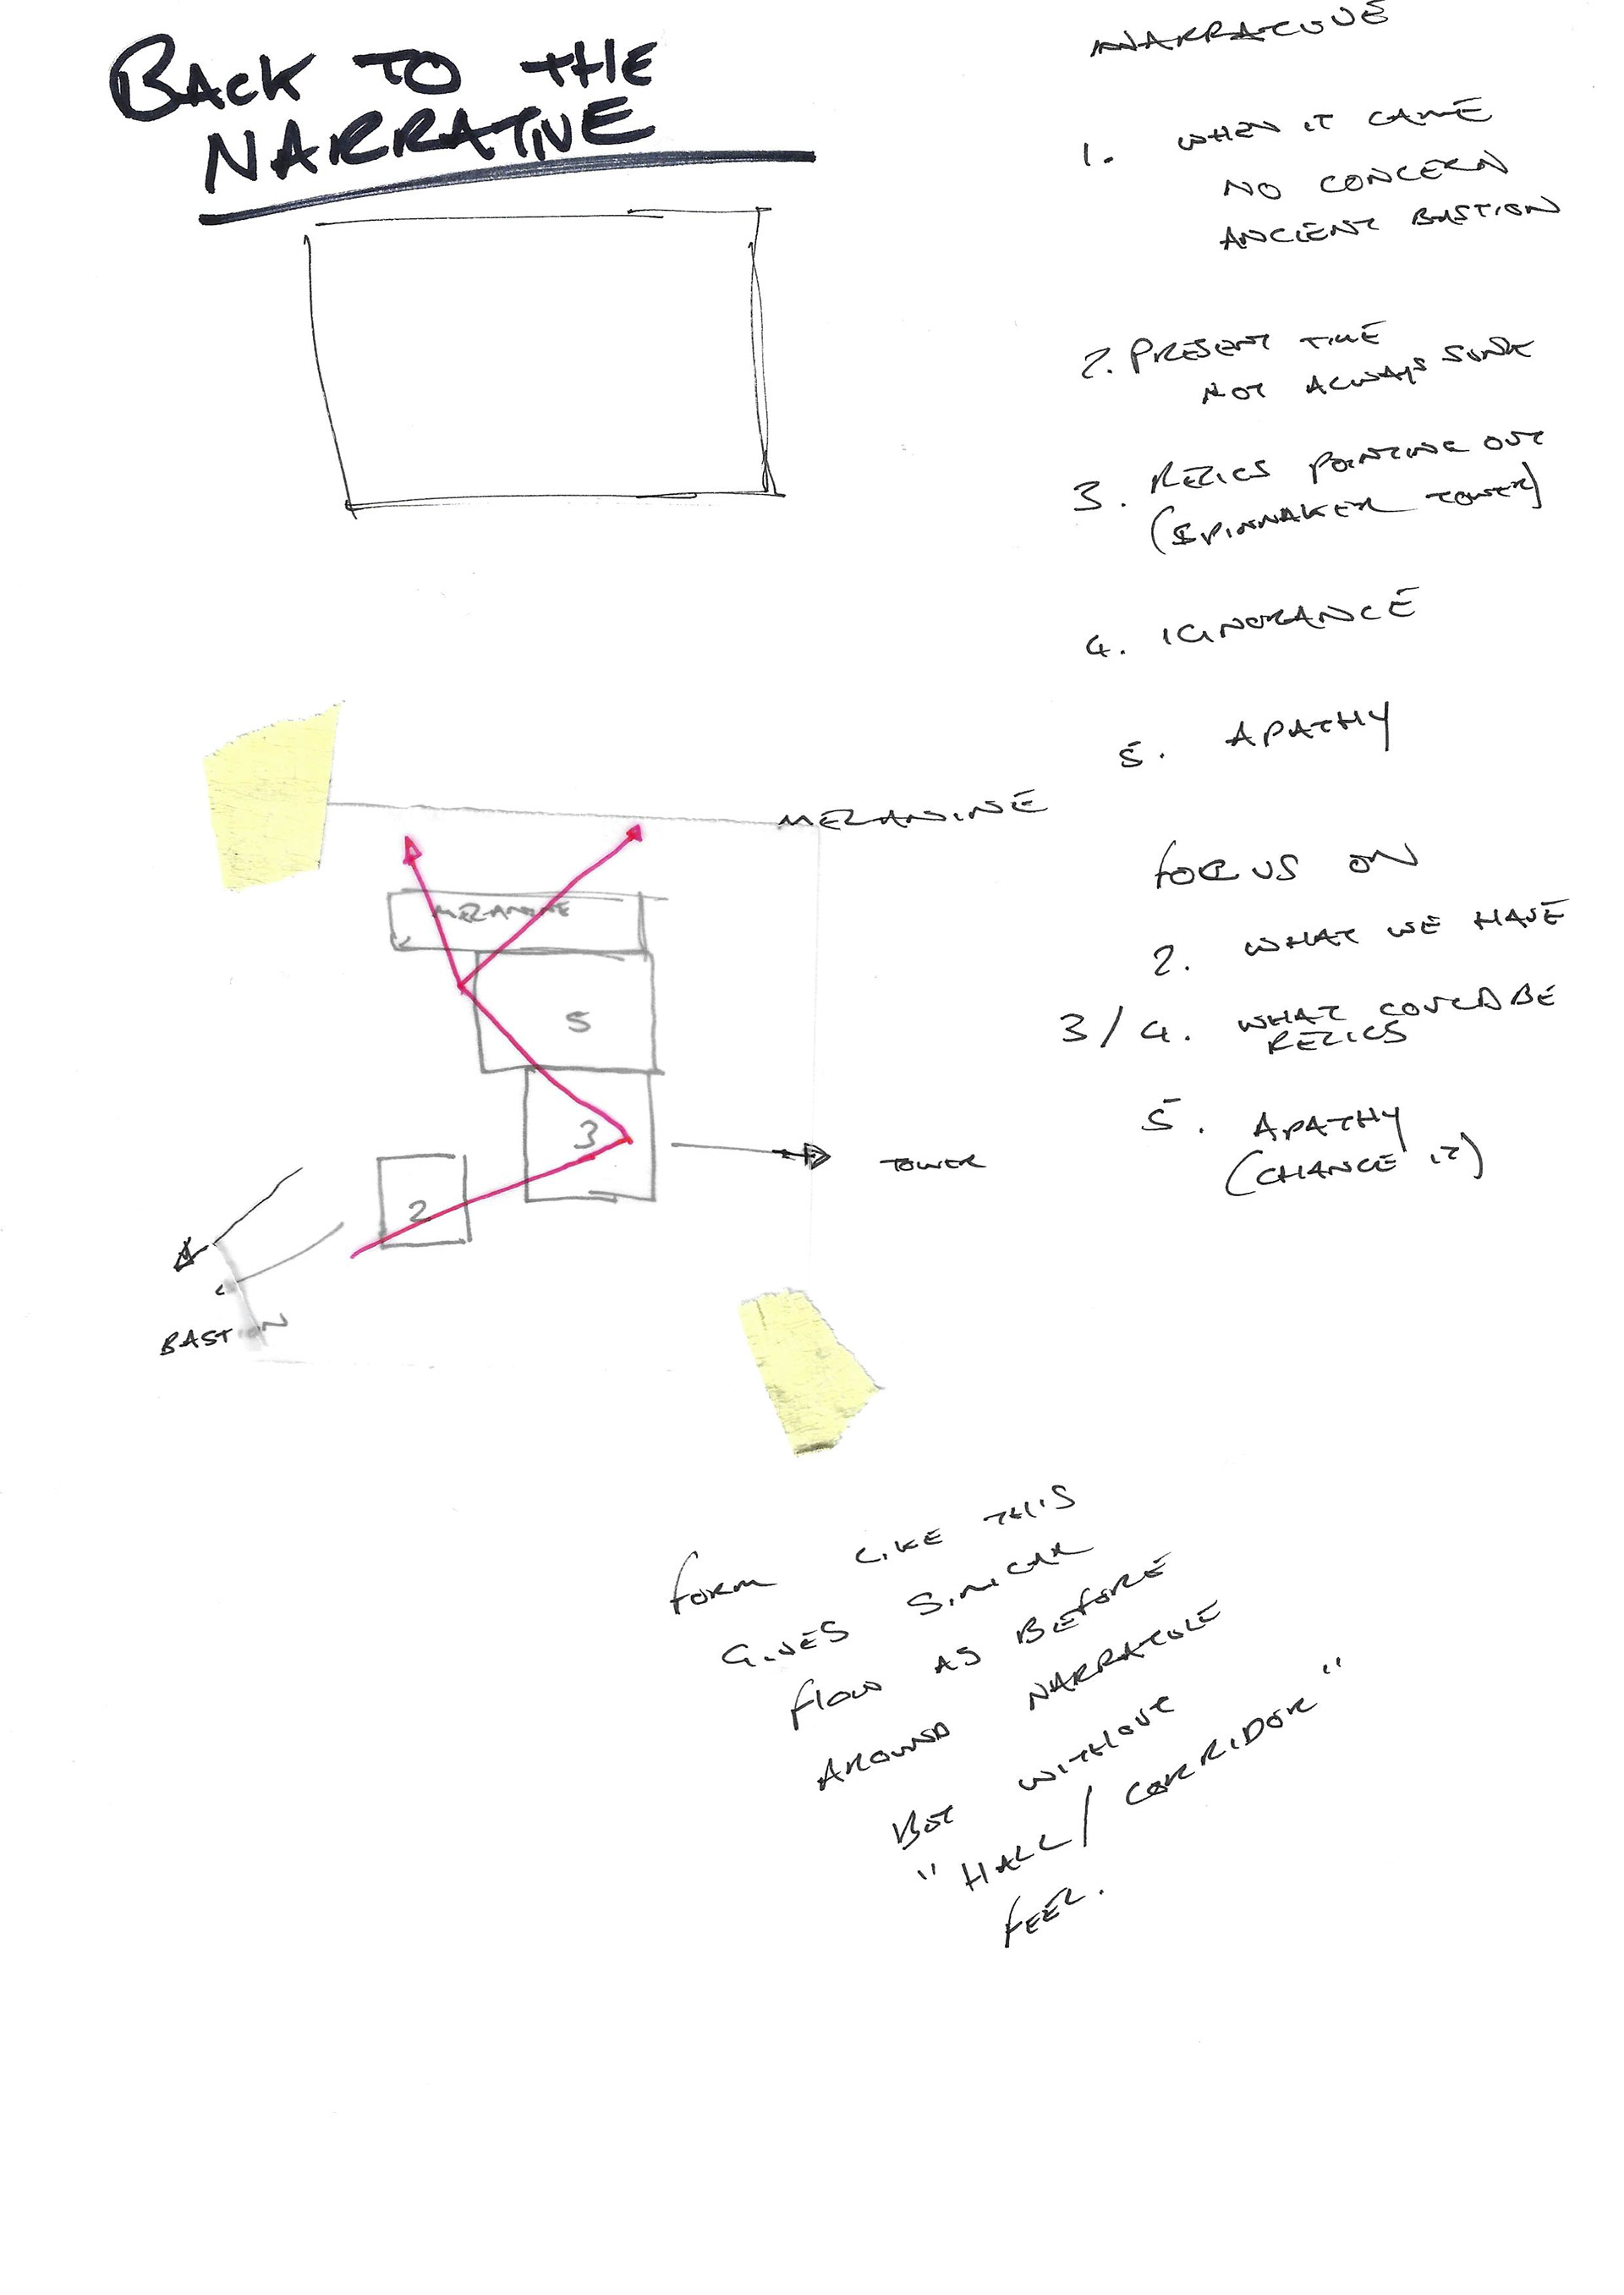 BACK TO THE
NARRATIVE
NARRATIVE
1. WHEN IT CAME
NO CONCERN
ANCIENT BASTION
2. PRESENT TIME
NOT ALWAYS SUNK
3. RELICS POINTING OUT
(SPINNAKER TOWER)
4. IGNORANCE
5. APATHY
MEZANINE
FOCUS ON
2. WHAT WE HAVE
3/4. WHAT COULD BE
RELICS
5. APATHY
(CHANGE IT)
MEZANINE
5
3
2
TOWER
BASTION
FORM LIKE THIS
GIVES SIMILAR
FLOW AS BEFORE
AROUND NARRATIVE
BUT WITHOUT
"HALL/CORRIDOR"
FEEL.